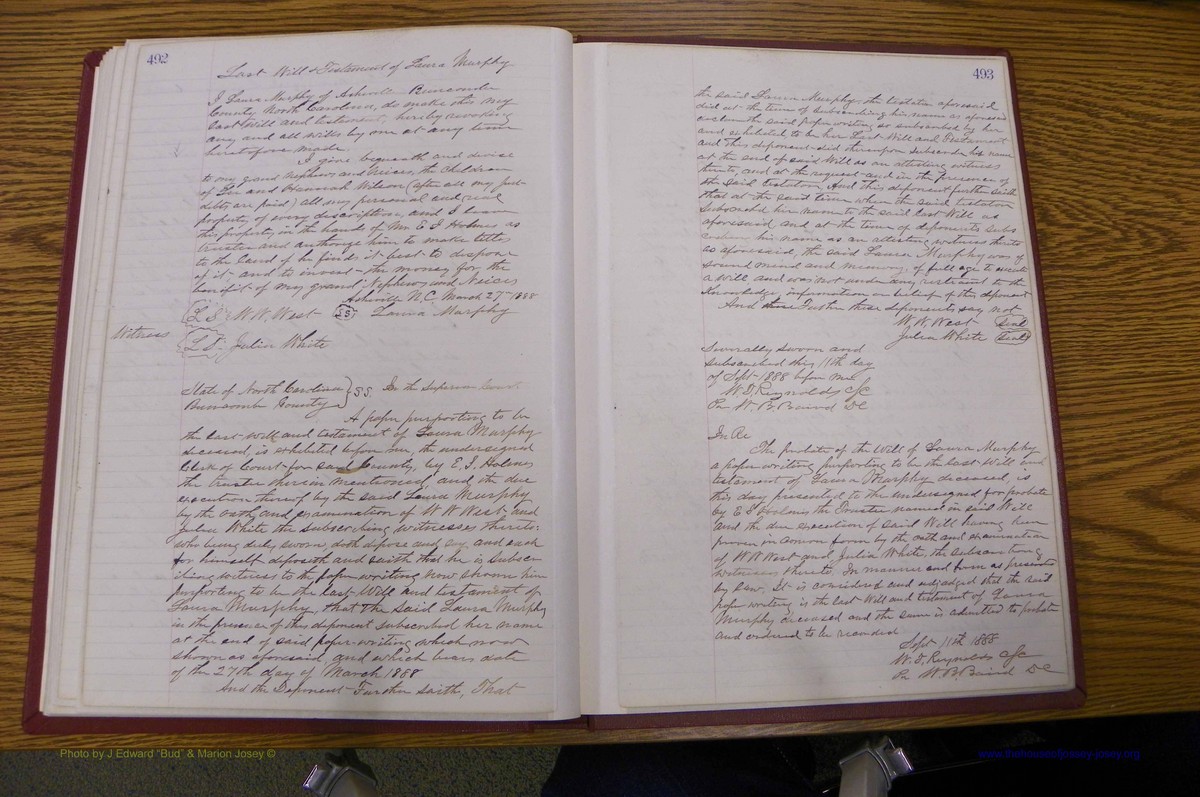 492
Last Will & Testament of Laura Murphy
I Laura Murphy of Asheville Buncombe
County North Carolina, do make this my
last Will and testament, hereby revoking
any and all wills by me at any time
heretofore made.
I give bequeath and devise
to my grand Nephews and Neices, the Children
of and Hannah Wilson (after all my just
debts are paid) all my personal and real
property, of every description, and I leave
this property in the hands of Mr E I Holmes as
trustee and authorize him to make titles
to the Land if he finds it best to dispose
of it and to invest the money for the
benefit of my grand Nephews and Neices
Asheville N.C. March 27th 1888
L S W. W. West Laura Murphy
Witness
L S Julia White
State of North Carolina } S.S. In the Superior Court
Buncombe County
A paper purporting to be
the last will and testament of Laura Murphy
deceased, is exhibited before me, the undersigned
Clerk of Court for said County, by E. I. Holmes
the trustee therein mentioned, and the due
execution thereof by the said Laura Murphy
by the oath and examination of W W West, and
Julia White the subscribing witnesses thereto
who being duly sworn doth depose and say, and each
for himself deposeth and saith that he is subscri-
bing witness to the paper writing now shown him
purporting to be the last Will and testament of
Laura Murphy, that the said Laura Murphy
in the presence of this deponent subscribed her name
at the end of said paper writing which now
shown as aforesaid, and which bears date
of the 27th day of March 1888
And the Deponent Further saith, That
493
the said Laura Murphy the testator aforesaid
did at the time of subscribing his name as aforesaid
declare the said paper writing so subscribed by her
and exhibited to be her Last Will and Testament
and this deponent did thereupon subscribe his name
at the end of said Will as an attesting witness
thereto, and at the request and in the presence of
the said testator. And this deponent further saith
that at the said time when the said testator
Subscribed her name to the said last Will as
aforesaid, and at the time of deponents subs
cribing his name as an attesting witness thereto
as aforesaid, the said Laura Murphy was of
sound mind and memory, of full age to execute
a Will and was not under any restraint to the
knowledge, information or belief of this deponent
And further these deponents say not
W. W. West (Seal)
Julia White (Seal)
Severally sworn and
subscribed this 11th day
of Sept 1888 before me
W. T. Reynolds CSC
Pr W. B. Baird DC
In Re
The probate of the Will of Laura Murphy
a paper writing purporting to be the last Will and
testament of Laura Murphy deceased, is
this day presented to the undersigned for probate
by E I Holmes the Trustee named in said Will
and the due execution of said Will having been
proven in common form by the oath and examination
of W W West and Julia White, the subscribing
witnesses thereto. In manner and form as prescribed
by law, It is considered and adjudged that the said
paper writing is the last Will and testament of Laura
Murphy deceased and the same is admitted to probate
and ordered to be recorded
Sept 11th 1888
W. T. Reynolds CSC
Pr W. B. Baird DC
Photo by J Edward "Bud" & Marion Josey ©
www.thehouseofjossey-josey.org